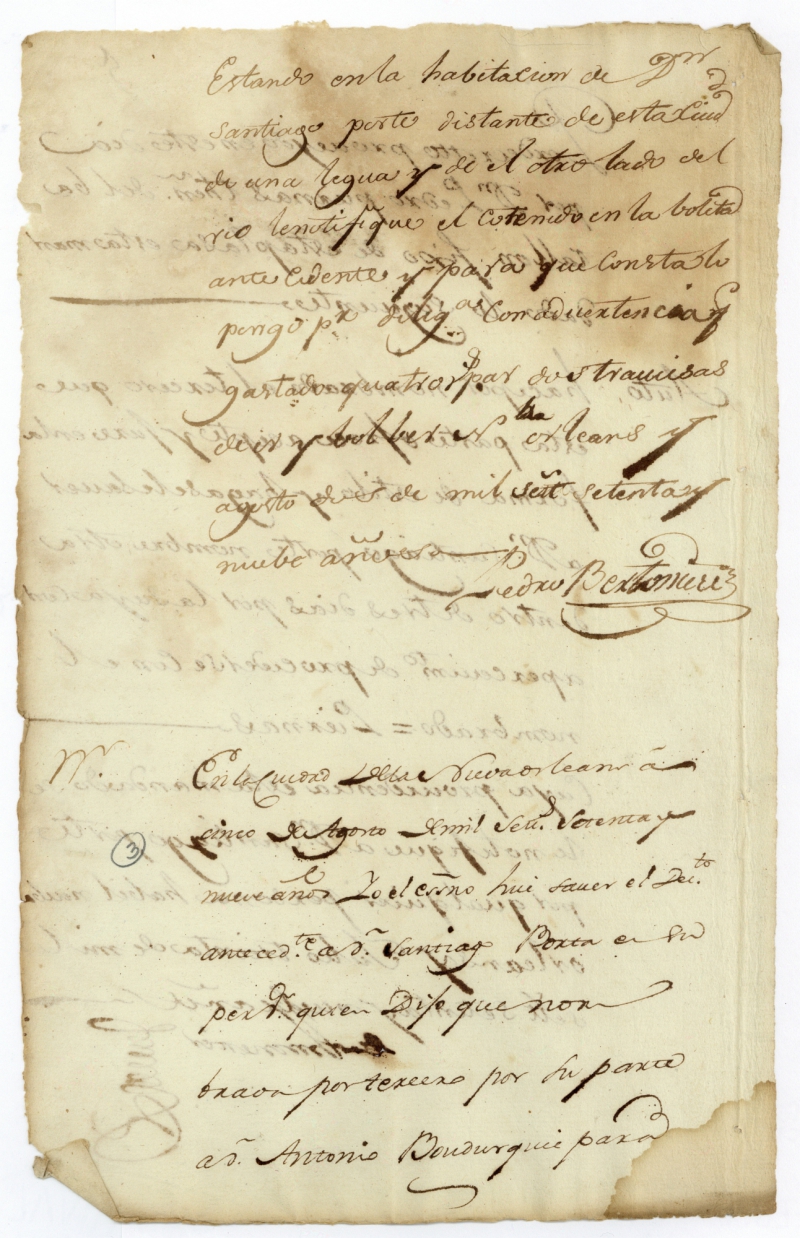 Estando en la habitacion de Dn
santiago porte distante de esta Ciud
de una legua y de el otro lado del
rio lenotifique el cotenido en la boleta
ante cedente y para que Consta lo
pongo pr dilig.as Con advertencia q
gastado quatro ps par dos travicias
de ir y bolber Na orleans y
agosto de de mil set setenta y
nuebe años
Pedro Bertonière
Nn.
En la Ciudad dela Nueva orleans â
3
cinco de Agosto de mil Setd. Setenta y
nueve años Yo el essno hise saver el Dec.to
anteced.te a Dn. Santiago Porta en su
perna. quien Dijo que nom
brava por tercero por su parte
a Dn. Antonio Boudurquie para